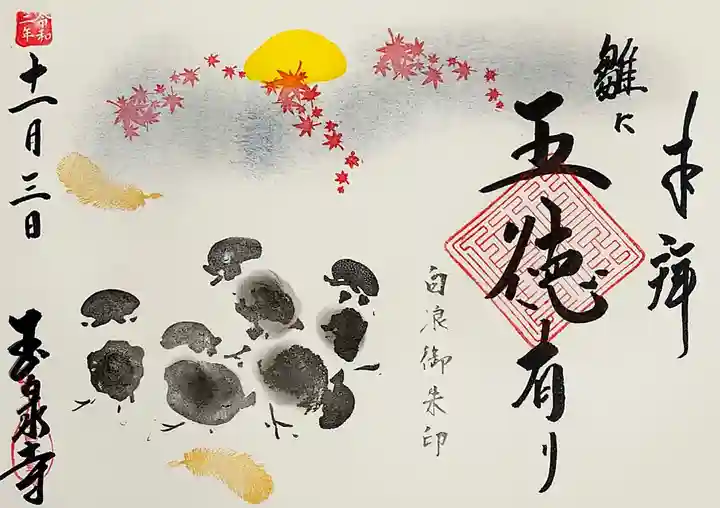 奉拝
雛に
五徳有り
白浪御朱印
令和
二年
十一月三日
玉泉寺